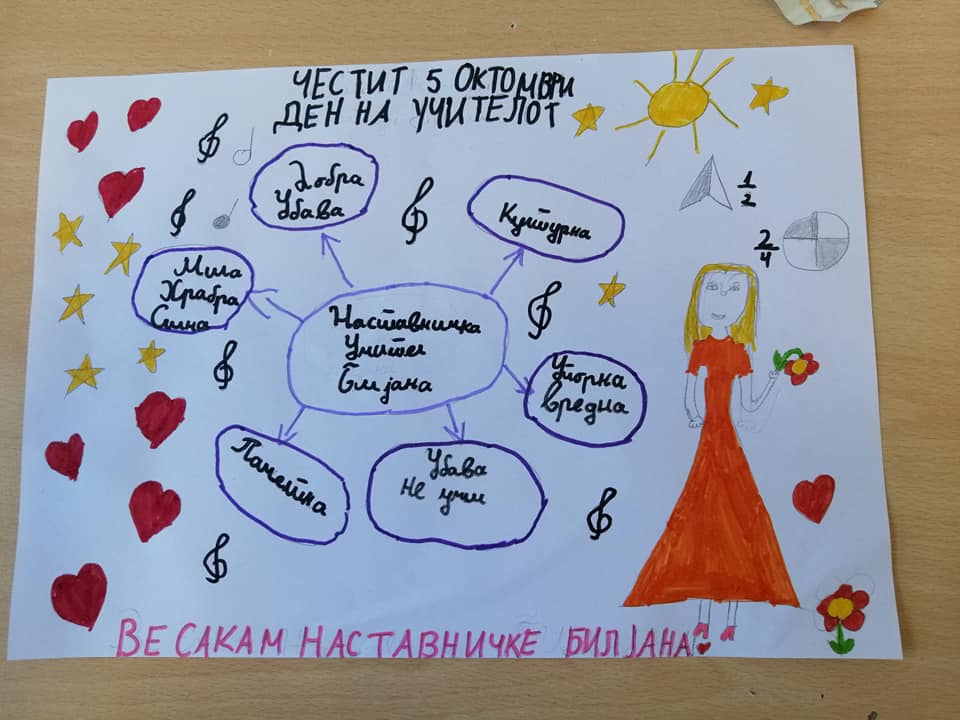 ЧЕСТИТ 5 ОКТОМВРИ
ДЕН НА УЧИТЕЛОТ
Добра
Убава
Културна
1/2
2/4
Мила
Храбра
Силна
Наставничка
Учител
Билјана
Упорна
вредна
Паметна
Убава
не учи
ВЕ САКАМ НАСТАВНИЧКЕ БИЛЈАНА